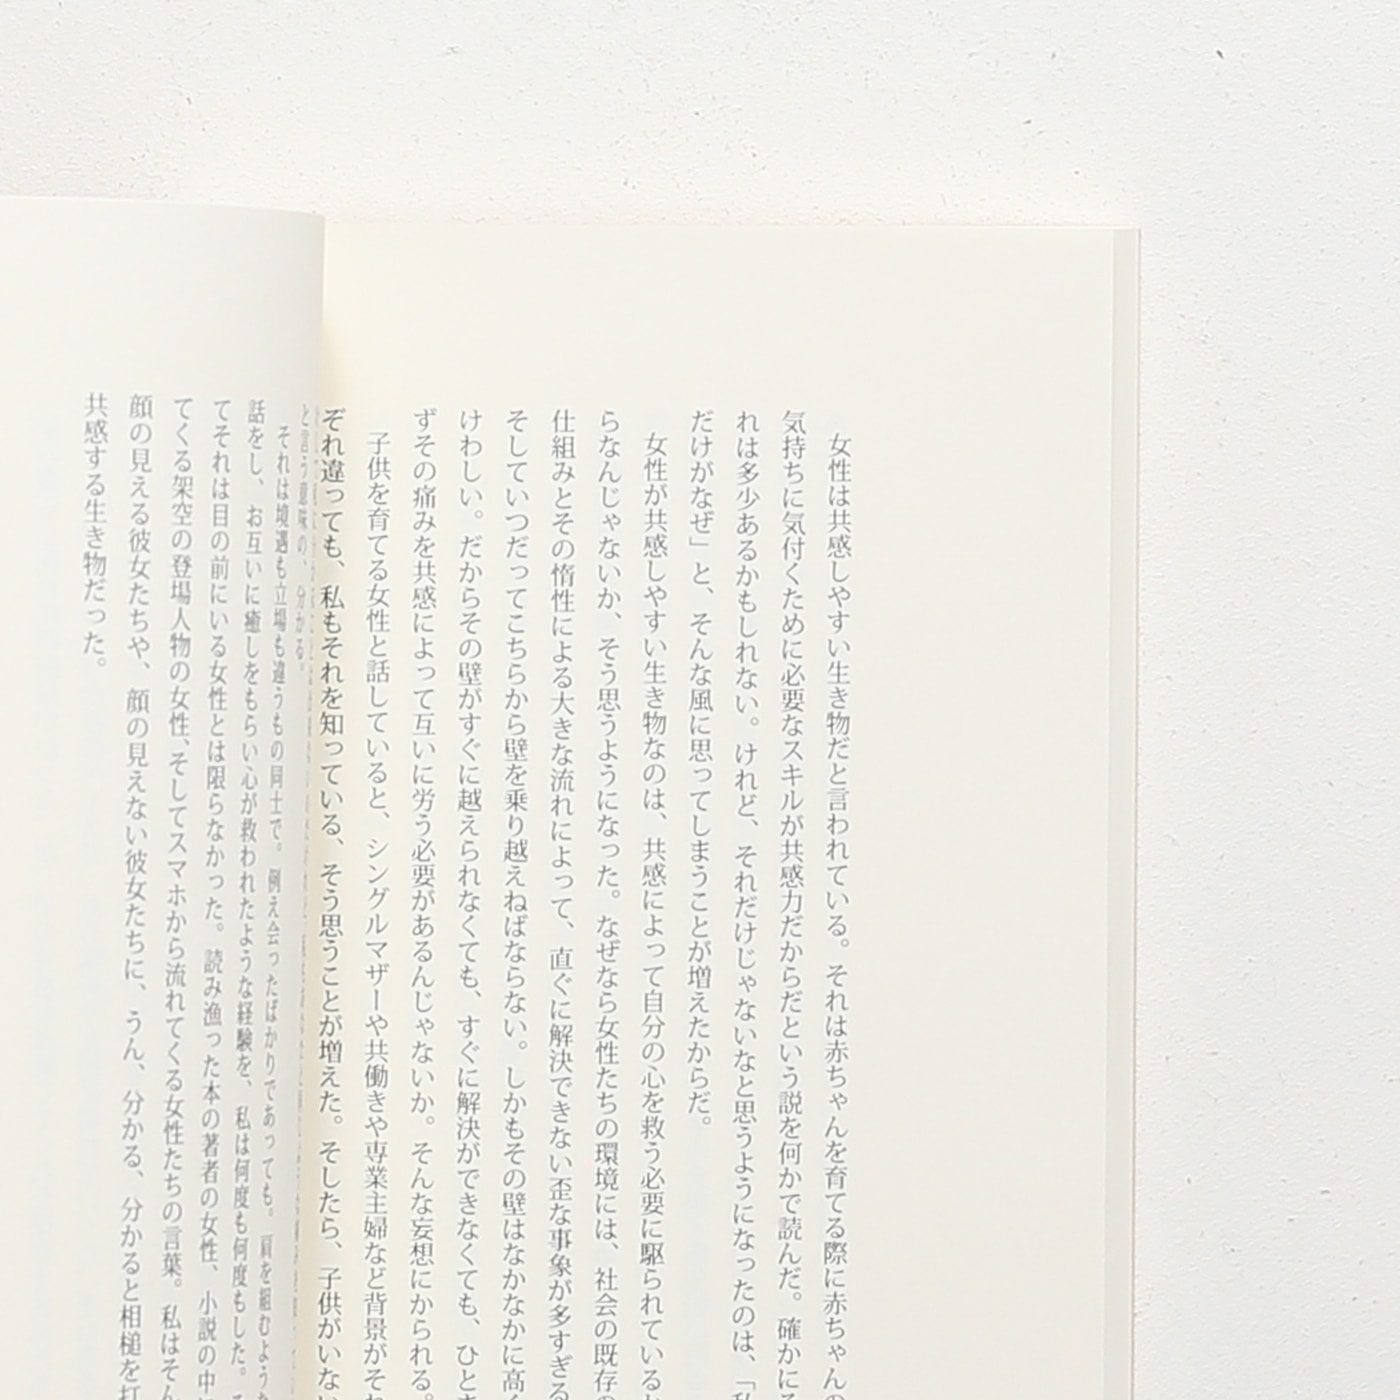 女性は共感しやすい生き物だと言われている。それは赤ちゃんを育てる際に赤ちゃんの
気持ちに気付くために必要なスキルが共感力だからだという説を何かで読んだ。確かにそ
れは多少あるかもしれない。けれど、それだけじゃないなと思うようになったのは、「私
だけがなぜ」と、そんな風に思ってしまうことが増えたからだ。
女性が共感しやすい生き物なのは、共感によって自分の心を救う必要に駆られているか
らなんじゃないか、そう思うようになった。なぜなら女性たちの環境には、社会の既存の
仕組みとその惰性による大きな流れによって、直ぐに解決できない歪な事象が多すぎる
そしていつだってこちらから壁を乗り越えねばならない。しかもその壁はなかなかに高く
けわしい。だからその壁がすぐに越えられなくても、すぐに解決ができなくても、ひとま
ずその痛みを共感によって互いに労う必要があるんじゃないか。そんな妄想にかられる。
子供を育てる女性と話していると、シングルマザーや共働きや専業主婦など背景がそれ
ぞれ違っても、私もそれを知っている、そう思うことが増えた。そしたら、子供がいない
と言う意味の、分かる。
それは境遇も立場も違うもの同士で。例え会ったばかりであっても。肩を組むような
話をし、お互いに癒しをもらい心が救われたような経験を、私は何度も何度もした。そ
てそれは目の前にいる女性とは限らなかった。読み漁った本の著者の女性、小説の中に
てくる架空の登場人物の女性、そしてスマホから流れてくる女性たちの言葉。私はそん
顔の見える彼女たちや、顔の見えない彼女たちに、うん、分かる、分かると相槌を打
共感する生き物だった。